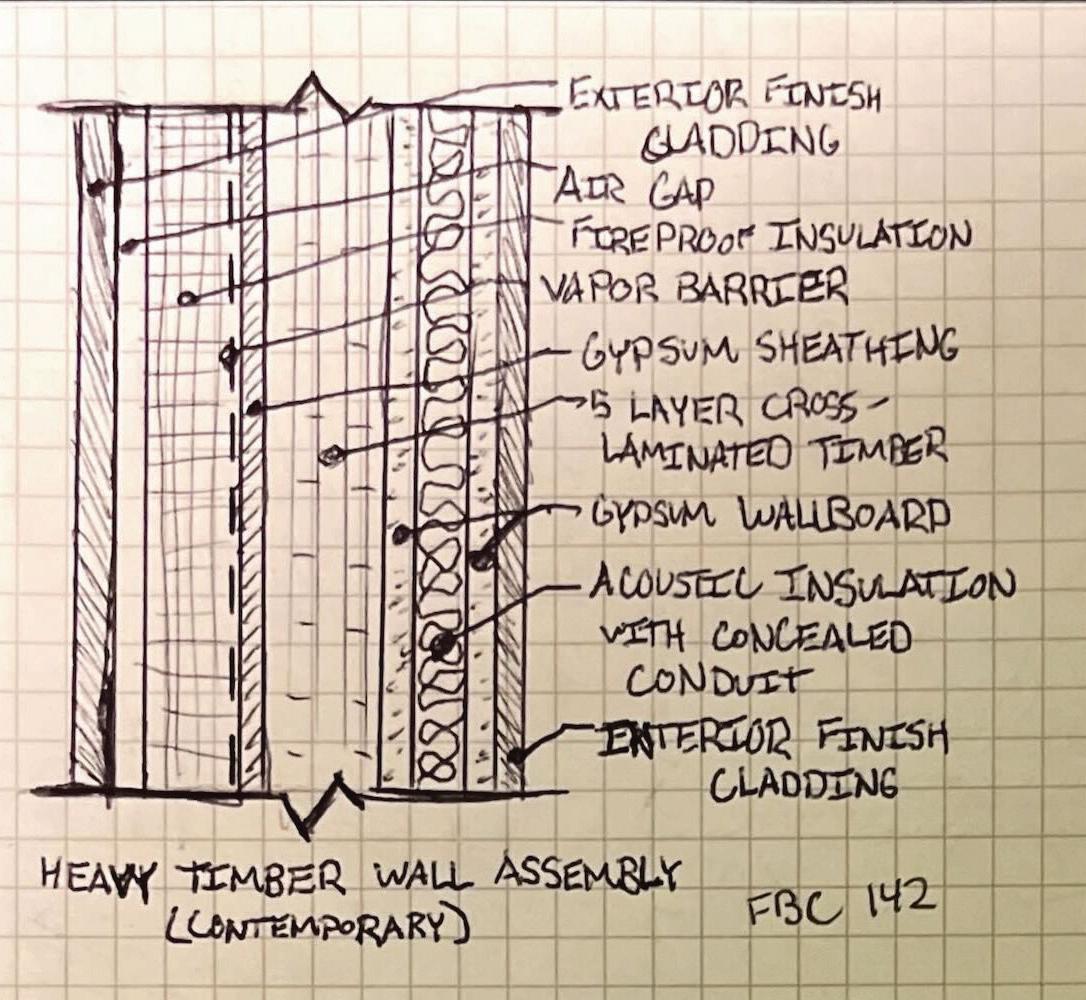 EXTERIOR FINISH
CLADDING
AIR GAP
FIREPROOF INSULATION
VAPOR BARRIER
GYPSUM SHEATHING
5 LAYER CROSS-
LAMINATED TIMBER
GYPSUM WALLBOARD
ACOUSTIC INSULATION
WITH CONCEALED
CONDUIT
INTERIOR FINISH
CLADDING
HEAVY TIMBER WALL ASSEMBLY
(CONTEMPORARY)
FBC 142